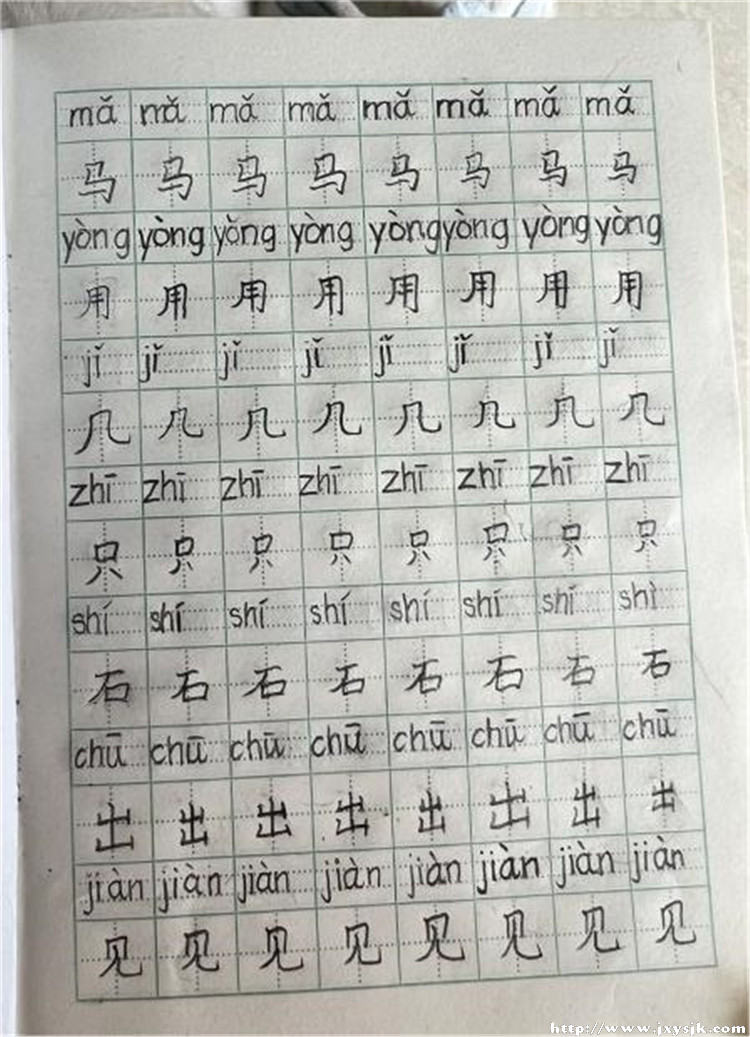 mǎ mǎ mǎ mǎ mǎ mǎ mǎ mǎ
马 马 马 马 马 马 马 马
yòng yòng yǒng yòng yòng yòng yòng yòng
用 用 用 用 用 用 用 用
jǐ jǐ jǐ jǐ jǐ jǐ jǐ jǐ
几 几 几 几 几 几 几 几
zhī zhī zhī zhī zhī zhī zhī zhī
只 只 只 只 只 只 只 只
shí shí shí shí shí shí shí shì
石 石 石 石 石 石 石 石
chū chū chū chū chū chū chū chū
出 出 出 出 出 出 出 出
jiàn jiàn jiàn jiàn jiàn jiàn jiàn jiàn
见 见 见 见 见 见 见 见
http://www.jxysjk.com